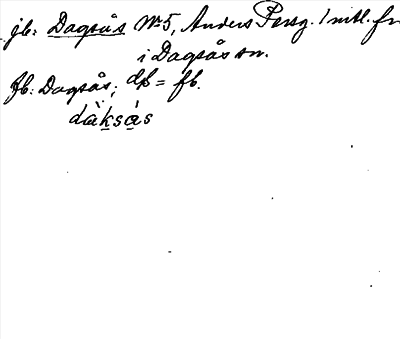 jb: Dagsås No 5, Anders Persg. 1 mtl. fr
i Dagsås sn.
fb: Dagsås; df = fb.
dàksås